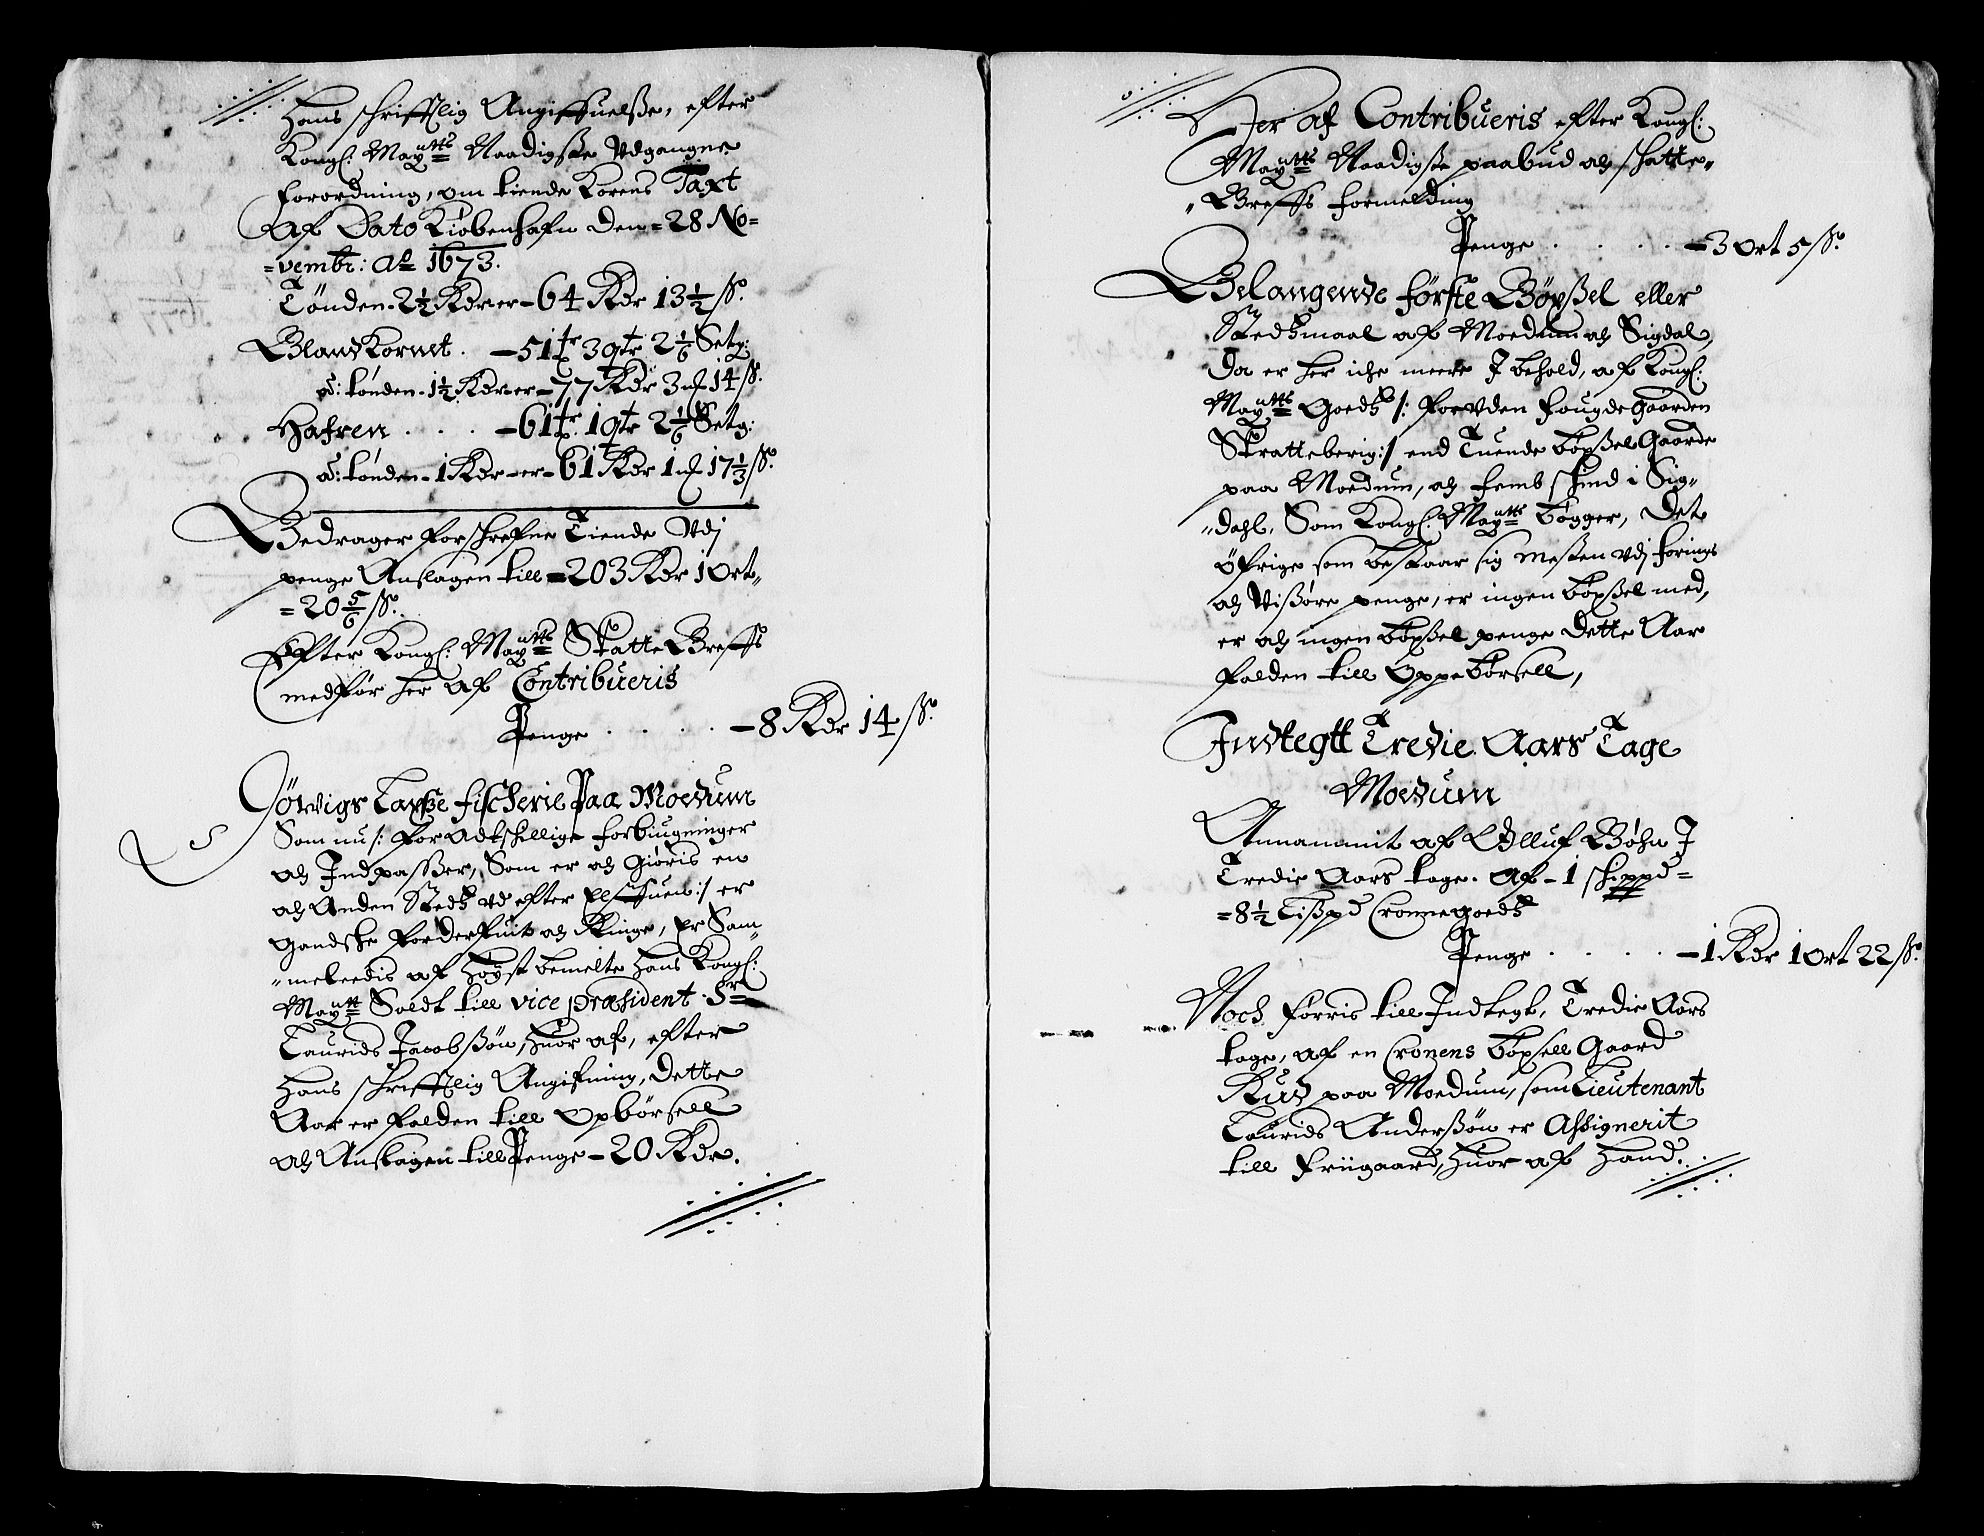 Hans schrifftlig Angiffuelße, efter
Kongl: Mayatts Naadigste Udgangne
forordning, om tiende Korens Taxt
Af Dato Kiøbenhafn den = 28 No=
=vembr: Ao 1673.
Tønden - 2½ Rdr er - 64 Rdr 13½ ß.
Blandkornet . - 51 tr 3 qtr 2 1/6 Setg:
à: tønden - 1½ Rdr er - 77 Rdr 3 ort 14 ß.
Hafren . . . - 61 tr. 1 qtr 2 1/6 Setg:
à: tønden - 1 Rdr - er - 61 Rdr 1 ort 17 1/3 ß.
Bedrager forschrefne Tiende Udj
penge Anslagen till = 203 Rdr 1 Ort
= 20 5/6 ß.
Efter Kongl: Mayatts Skatte Breffs
medfør her af Contribueris
Penge . . . . - 8 Rdr 14 ß.
Jørvigs Laxße fischerie Paa Modum
5
Som nu /: for adtskillige forbugninger
och Indpasser, Som er och giøris en
och Anden Stedtz ved efter Elffuen :/ er
gandske forderffuit och Ringe, Er Sam=
=meleedis af høyst bemelte Hans Kongl:
Mayatt Soldt till vice præsident Sr
Laurids Jacobsøn, Huor af, efter
Hans schrifftlig Angifning, dette
Aar er falden till Opbørsell
och Anslagen till Penge - 20 Rdr.
Her af Contribueris efter Kongl:
Mayatts Naadigste paabud och schatte=
=Breffs formelding
Penge . . . . - 3 Ort 5 ß.
Belangende første Bøxßel eller
Stedtzmaal af Moedum och Sigdal,
da er her iche meere I behold, af Kongl:
Mayatts Goedtz /: foruden fougdegaarden
Skratteberig :/ end Tuende bøxßel Gaarde
paa Moedum, och femb schind i Sig=
=dahl, Som Kongl: Mayatts bøgger, Det
Øfrige som bestaar sig mesten udj forings
och Wisøre penge, er ingen bøxßel med,
er och ingen bøxßel penge dette Aar
falden till Oppebørsell,
Indtegtt Tredie Aars Tage
Moedum
Annammit af Olluf Bøhn I
Tredie Aars tage. Af - 1 schippd=
= 8½ Lißpd Cronnegoedtz
Penge . . . . - 1 Rdr 1 Ort 22 ß.
Noch førris till Indtegt, Tredie Aars
tage, af en Cronens bøxsell Gaard
Rud paa Moedum, som Lieutenant
Laurids Andersøn er Assignerit
till friigaard, Huor af Hand